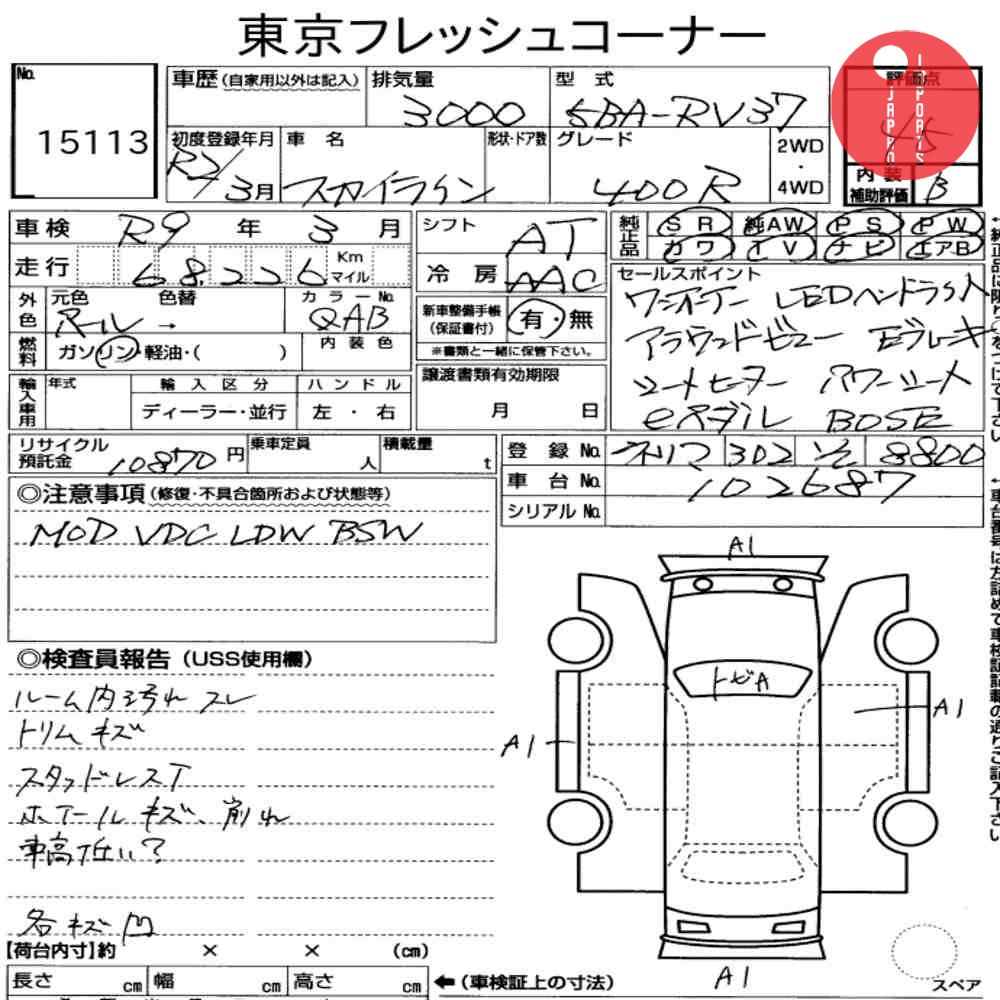 東京フレッシュコーナー
No.
15113
車歴(自家用以外は記入)
排気量
3000
型 式
5BA-RV37
評価点
4.5
JAPAN IMPORTS
初度登録年月
R2/3月
車 名
スカイライン
形状・ドア数
グレード
400R
2WD
・
4WD
内 装
補助評価
B
車検 R9 年 3 月
走行 68,226 Km
マイル
シフト AT
冷 房 AAC
純正品
SR 純AW PS PW
カワ TV ナビ エアB
外色
元色
パール→
色替
カラーNo.
QAB
燃料
ガソリン・軽油・( )
内装色
新車整備手帳
(保証書付)
有・無
※書類と一緒に保管下さい。
セールスポイント
ワンオーナー LEDヘッドライト
アラウンドビュー Eブレーキ
シートヒーター パワーシート
eペダル BOSE
輸入車用
年式
輸入区分
ディーラー・並行
ハンドル
左 ・ 右
譲渡書類有効期限
月 日
リサイクル
預託金 10870 円
乗車定員
人
積載量
t
登 録 No. ネリマ 302 そ 8800
車 台 No. 102687
シリアル No.
◎注意事項(修復・不具合箇所および状態等)
MOD VDC LDW BSW
◎検査員報告(USS使用欄)
ルーム内汚れ スレ
トリム キズ
スタッドレスT
ホイール キズ、削れ
車高低い?
各キズ凹
A1
トビA
A1
A1
A1
スペア
【荷台内寸】約 × × (cm)
長さ cm 幅 cm 高さ cm
←(車検証上の寸法)
←純正品に限り○をつけて下さい
←車台番号は左詰めで車検証記載の通りご記入下さい